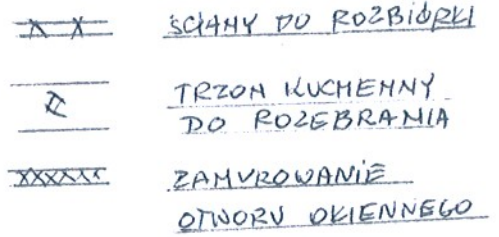 ŚCIANY DO ROZBIÓRKI
TRZON KUCHENNY
DO ROZEBRANIA
ZAMUROWANIE
OTWORU OKIENNEGO